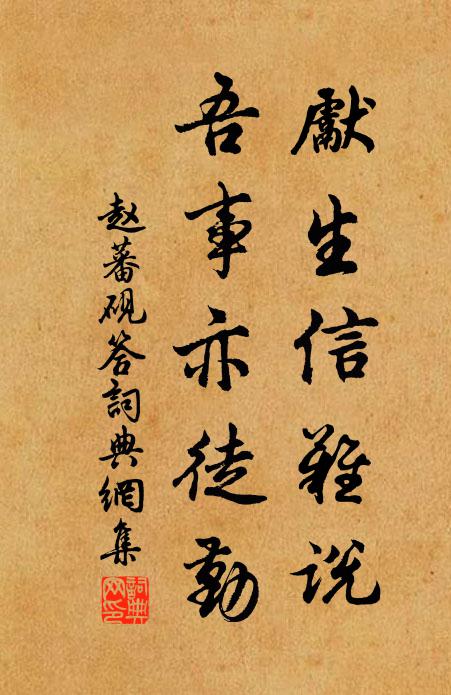 獻生信難説
吾事亦徒勤
赵蕃砚答詞典網集
詞典网印